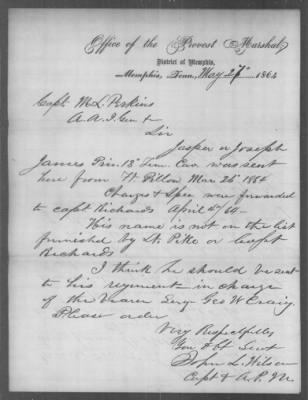 Office of the Provost Marshal
District of Memphis,
Memphis, Tenn, May 27" 1864
Capt M. L. Perkins
A. A. I. Gen t
Sir
Jasper or Joseph
James Priv. 13" Tenn. Cav. was sent
here from Ft Pillow Mar 26" 1864
Charges & Spec were forwarded
to Capt Richards April
His name is not on the list
furnished by Lt. Pike or Capt
Richards
I think he should be sent
to his regiment in charge
of the Geo W Craig
Please order
Very Respectfully
Your obt Servt
John L. Wilson
Capt & A. P. M